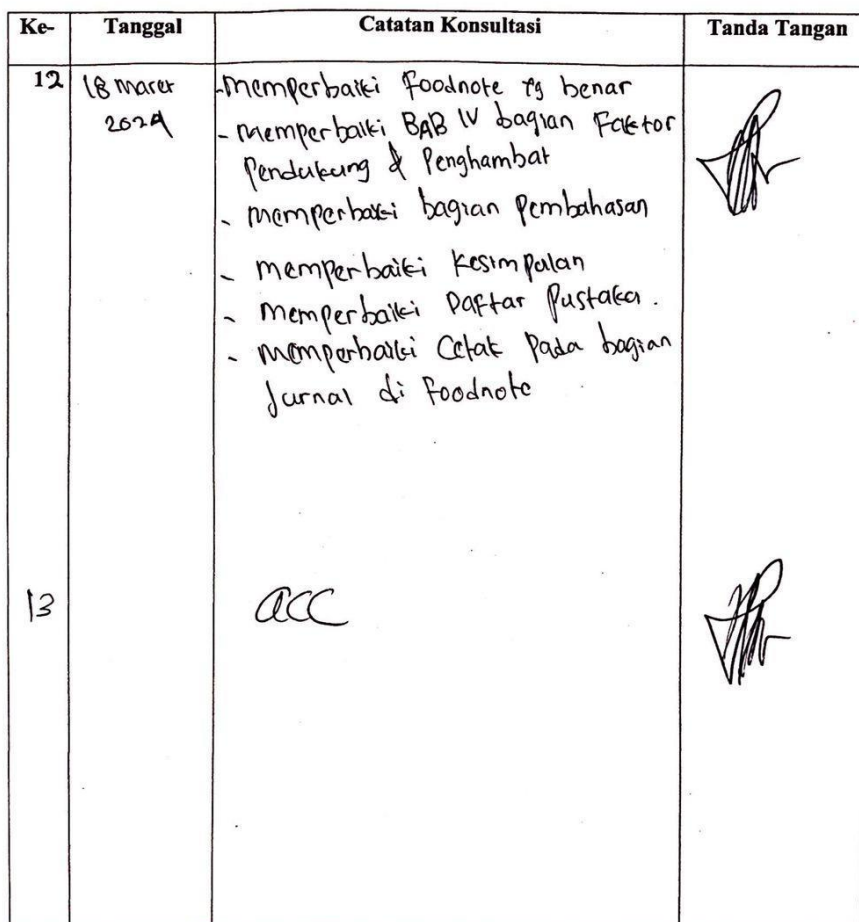 Ke- Tanggal Catatan Konsultasi Tanda Tangan
12 18 Maret -memperbaiki Foodnote yg benar
2024 - memperbaiki BAB IV bagian Faktor
Pendukung & Penghambat
- memperbaiki bagian Pembahasan
- memperbaiki Kesimpulan
- memperbaiki Daftar Pustaka.
- memperbaiki Cetak Pada bagian
Jurnal di Foodnote
13 acc